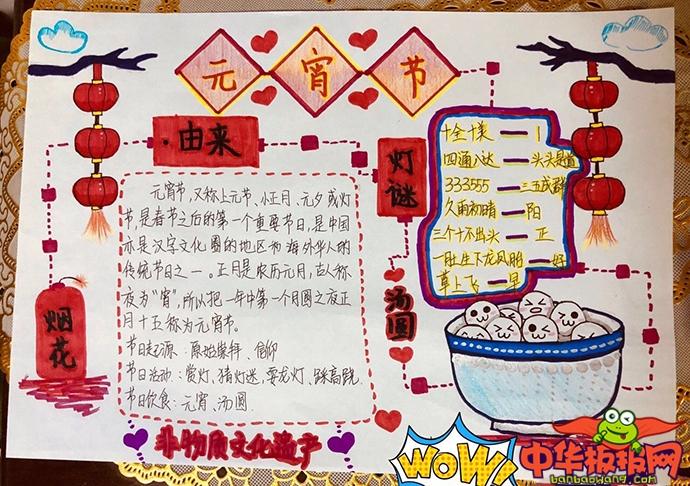 元宵节
由来
元宵节,又称上元节、小正月、元夕或灯
节,是春节之后的第一个重要节日,是中国
亦是汉字文化圈的地区和海外华人的
传统节日之一。正月是农历元月,古人称
夜为“宵”,所以把一年中第一个月圆之夜正
月十五称为元宵节。
节日起源:原始崇拜、信仰
节日活动:赏灯、猜灯迷、耍龙灯、踩高跷.
节日饮食:元宵、汤圆.
烟花
非物质文化遗产
灯谜
十全十美——1
四通八达——头头是道
333555——三五成群
久雨初晴——阳
三个十不出头——正
一肚生下龙凤胎——好
草上飞——早
汤圆
WOW!
中华板报网
banbaowang.com